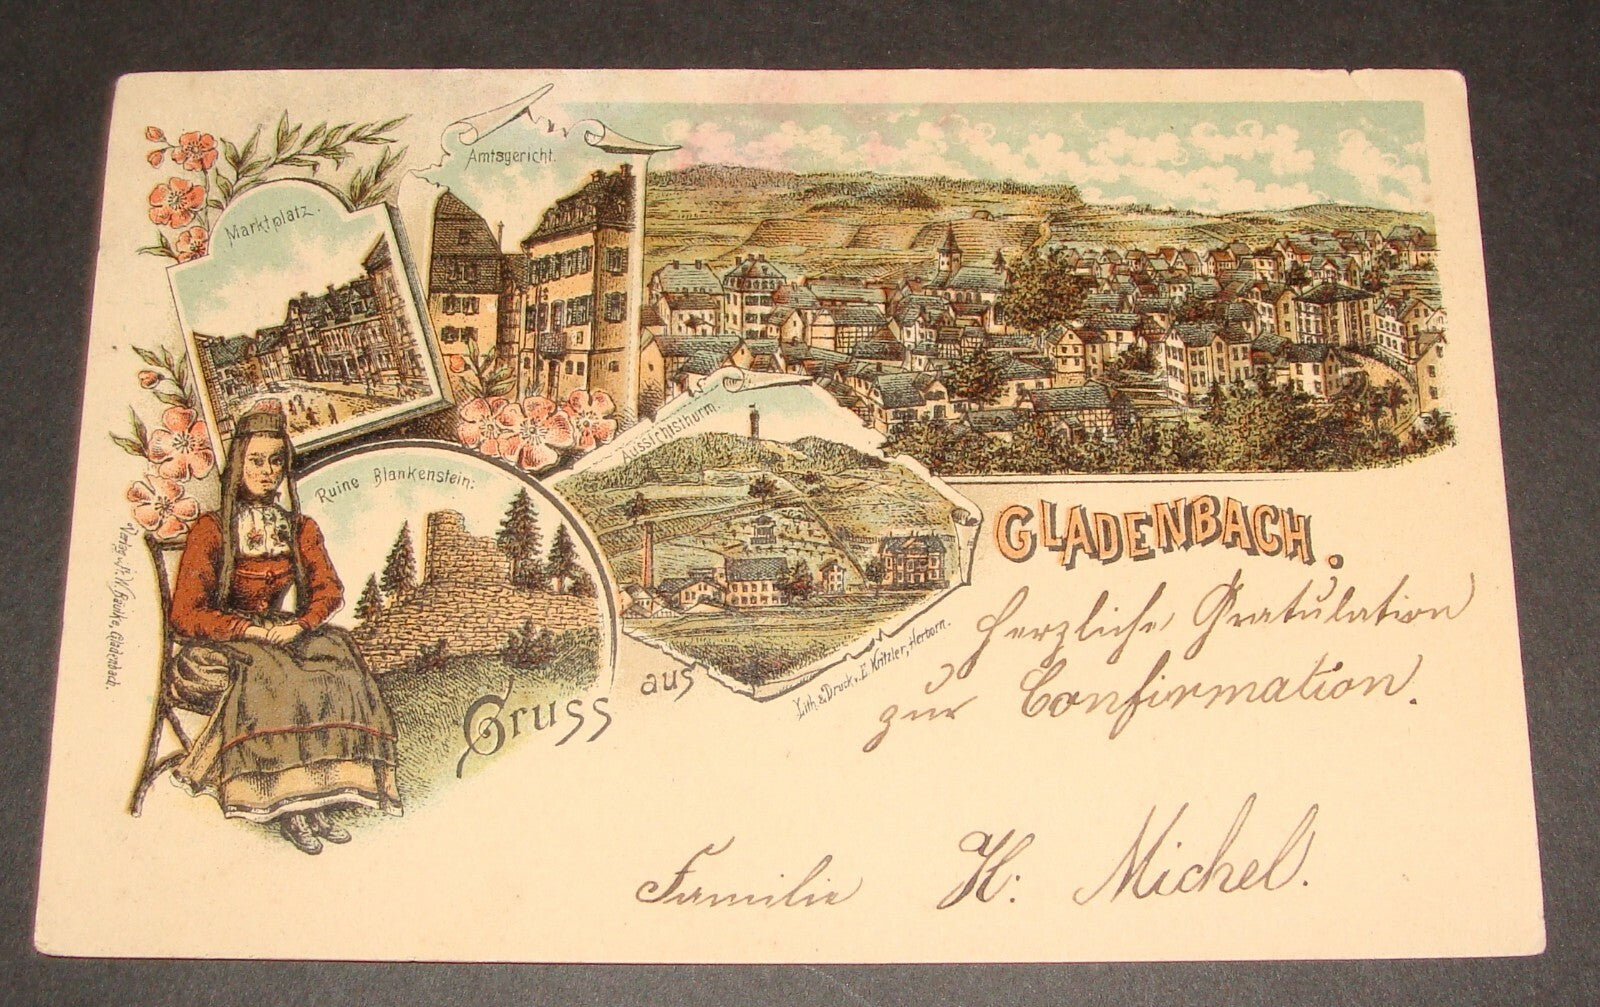 Marktplatz.
Amtsgericht.
Ruine Blankenstein:
Aussichtsthurm.
Gruss aus
GLADENBACH.
Lith. & Druck v. E. Kritzler, Herborn.
Herzliche Gratulation
zur Confirmation.
Familie H: Michel.
Verlag v. Gladenbach.